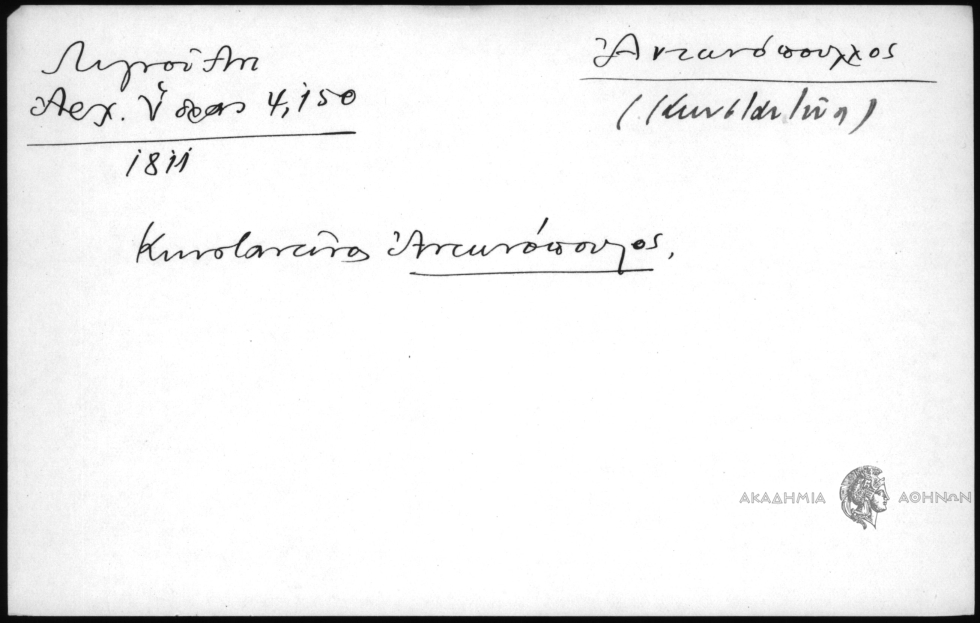 Λιγνοῦ Ἀντ
Ἀρχ. Ὕδρας 4, 150
1811
Ἀντωνόπουλος
(Κωνσταντῖνος)
Κωνσταντῖνος Ἀντωνόπουλος.
ΑΚΑΔΗΜΙΑ ΑΘΗΝΩΝ